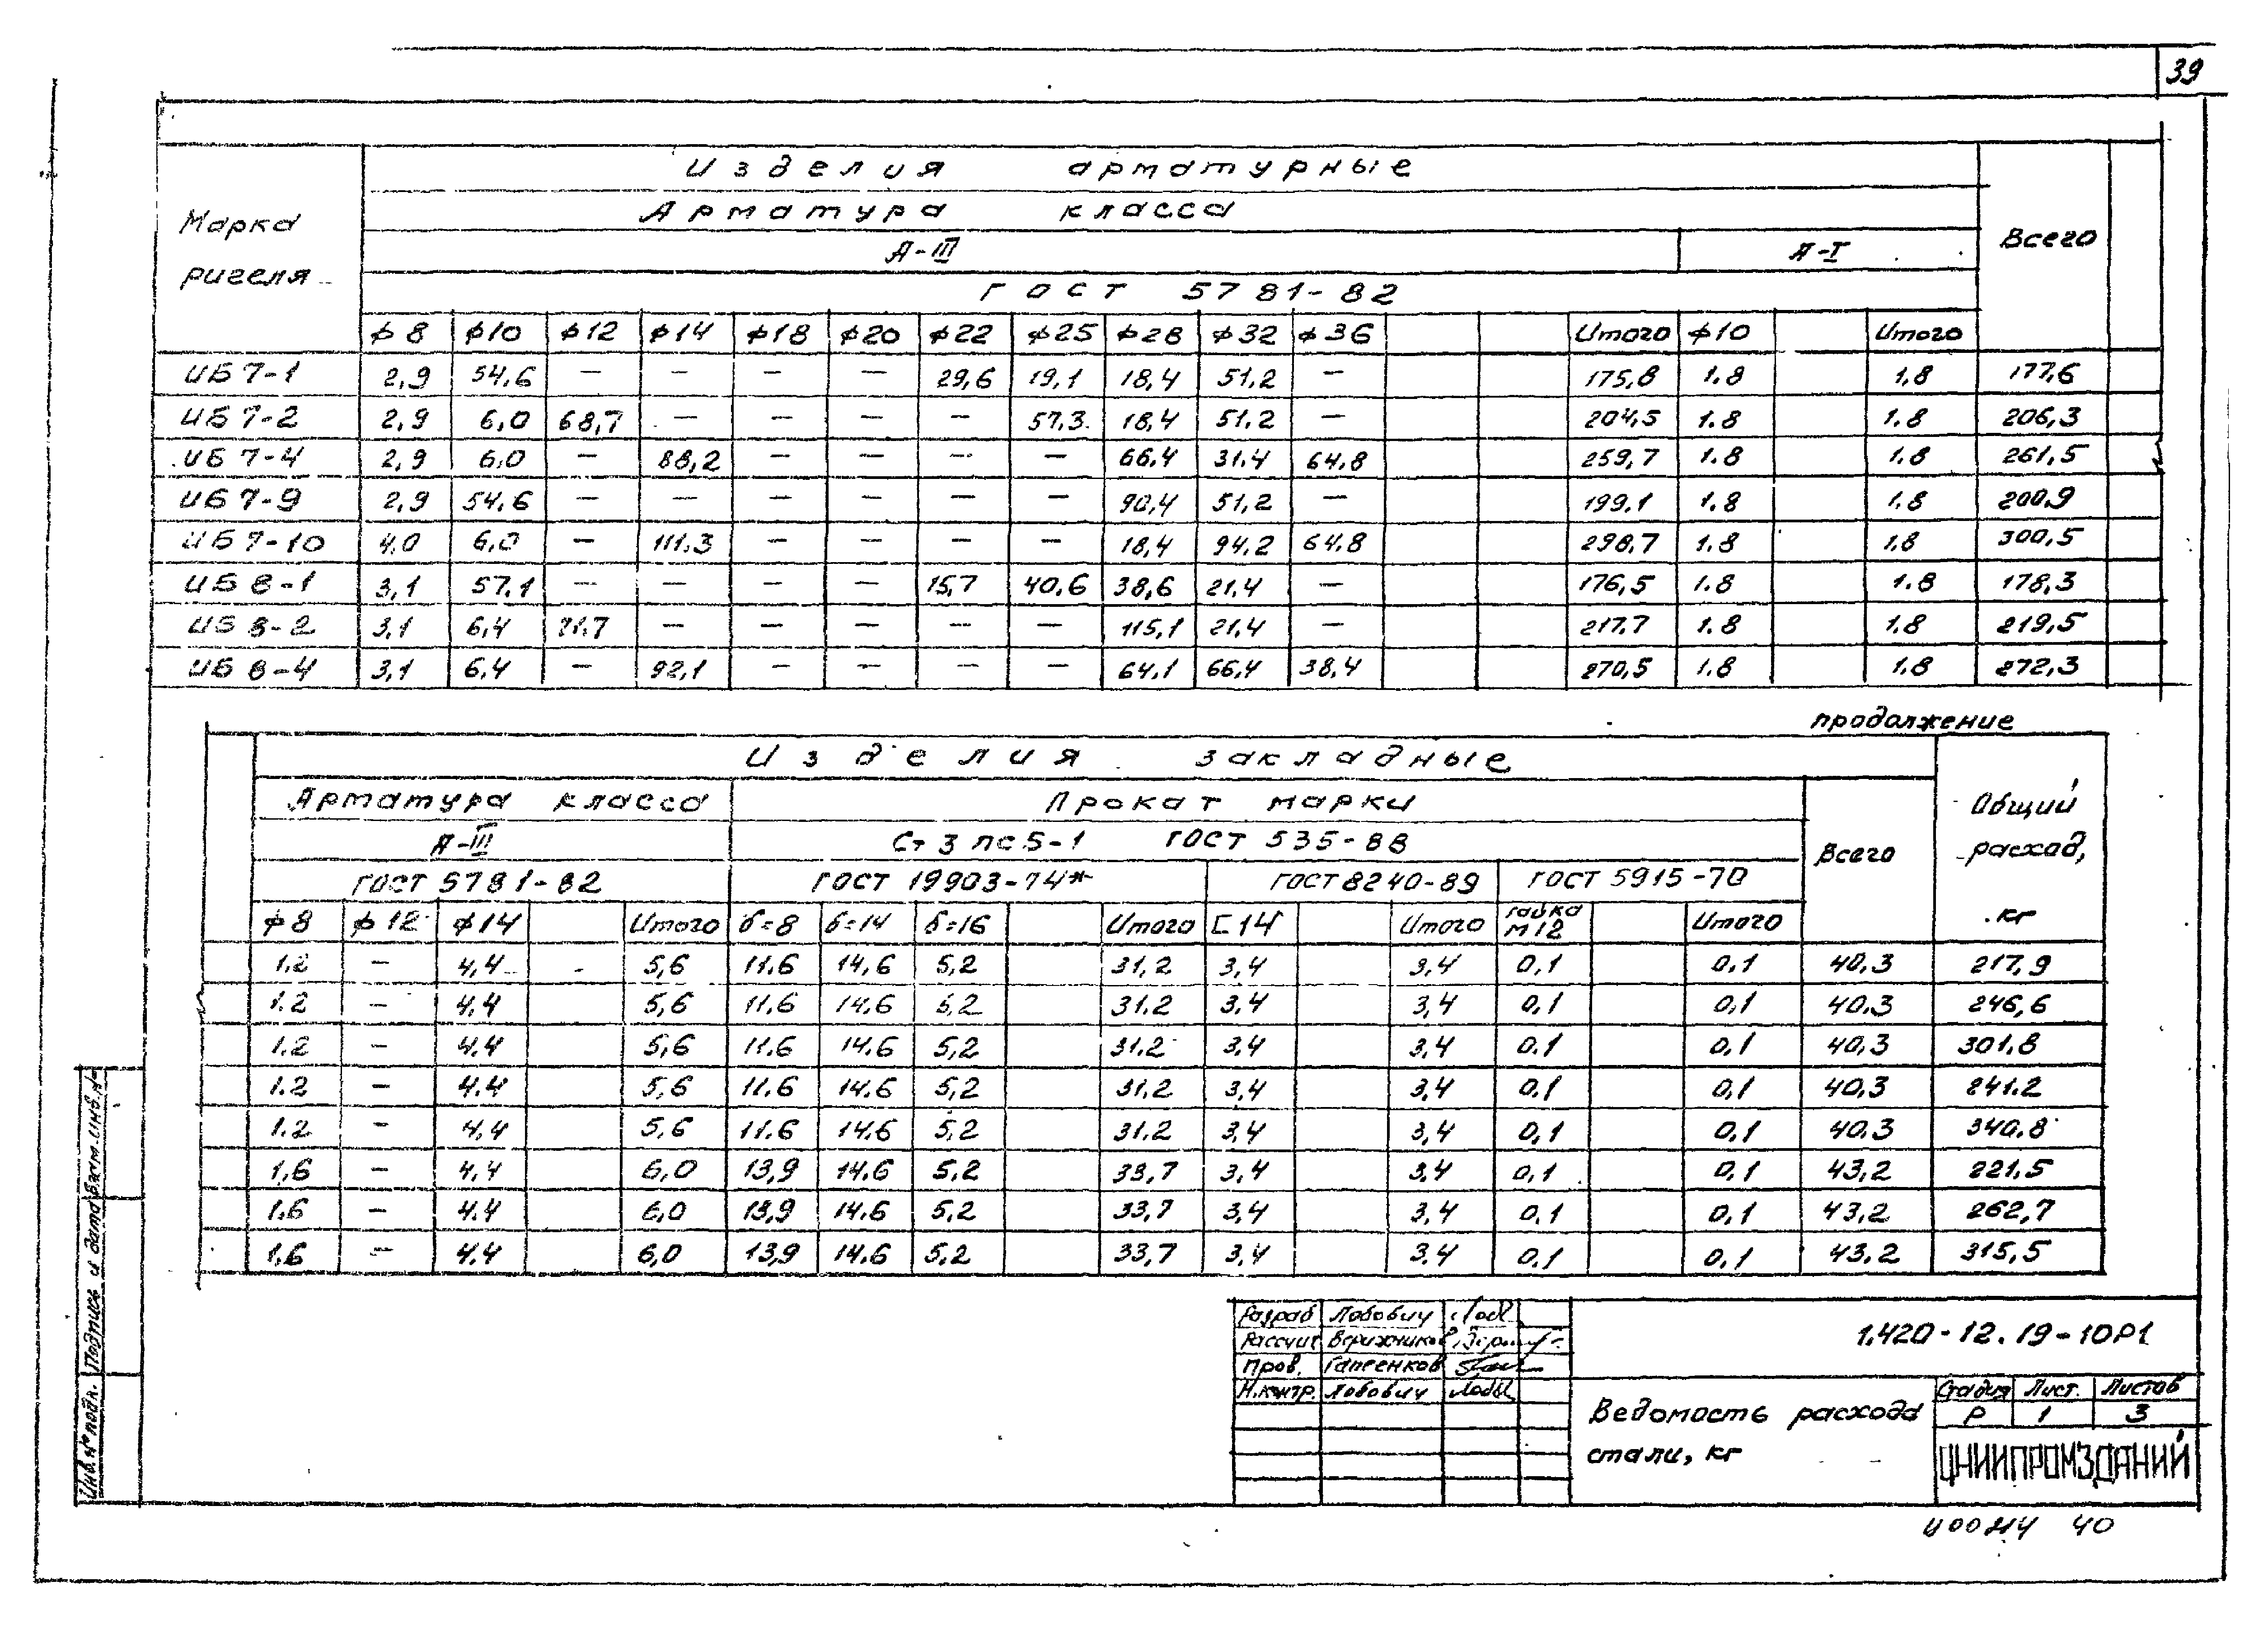 39
Марка ригеля
Изделия арматурные
Всего
Арматура класса
А-III А-I
ГОСТ 5781-82
ф8 ф10 ф12 ф14 ф18 ф20 ф22 ф25 ф28 ф32 ф36 Итого ф10 Итого
ИБ 7-1 2,9 54,6 — — — — 29,6 19,1 18,4 51,2 — 175,8 1.8 1,8 177,6
ИБ 7-2 2,9 6,0 68,7 — — — — 57,3 18,4 51,2 — 204,5 1.8 1.8 206,3
ИБ 7-4 2,9 6,0 — 88,2 — — — — 66,4 31.4 64,8 259,7 1.8 1.8 261,5
ИБ 7-9 2,9 54,6 — — — — — — 90,4 51,2 — 199.1 1.8 1.8 200,9
ИБ 7-10 4,0 6,0 — 111.3 — — — — 18,4 94,2 64,8 298,7 1.8 1.8 300,5
ИБ 8-1 3,1 57,1 — — — — 15,7 40,6 38,6 21,4 — 176,5 1.8 1.8 178,3
ИБ 8-2 3,1 6,4 71.7 — — — — — 115,1 21,4 — 217.7 1.8 1.8 219,5
ИБ 8-4 3,1 6,4 — 92,1 — — — — 64,1 66,4 38,4 270,5 1.8 1.8 272,3
продолжение
Изделия закладные
Общий расход, кг
Арматура класса Прокат марки
Всего
А-III Ст 3 пс 5-1 ГОСТ 535-88
ГОСТ 5781-82 ГОСТ 19903-74* ГОСТ 8240-89 ГОСТ 5915-70
ф8 ф12 ф14 Итого б=8 б=14 б=16 Итого [14 Итого гайка М12 Итого
1.2 — 4,4 5,6 11.6 14,6 5,2 31,2 3,4 3,4 0,1 0,1 40,3 217,9
1.2 — 4,4 5,6 11,6 14,6 5,2 31.2 3,4 3,4 0,1 0,1 40,3 246,6
1.2 — 4.4 5,6 11.6 14.6 5,2 31.2 3,4 3,4 0.1 0,1 40,3 301,8
1.2 — 4.4 5,6 11.6 14.6 5,2 31,2 3,4 3,4 0.1 0,1 40,3 241.2
1.2 — 4,4 5,6 11.6 14.6 5,2 31.2 3,4 3,4 0,1 0,1 40,3 340,8
1,6 — 4,4 6,0 13,9 14.6 5,2 33,7 3,4 3,4 0,1 0,1 43,2 221,5
1.6 — 4.4 6,0 13,9 14.6 5,2 33,7 3,4 3,4 0.1 0,1 43,2 262,7
1,6 — 4.4 6,0 13,9 14.6 5,2 33,7 3,4 3,4 0.1 0,1 43,2 315,5
Разраб Лобович
Рассчит Вершников
Пров. Гапеенков
Н.контр. Лобович
1.420-12.19-10Р1
Ведомость расхода
стали, кг
Стадия Лист. Листов
Р 1 3
ЦНИИПРОМЗДАНИЙ
40
Инв.№ подл.
Подпись и дата
Взам.инв.№